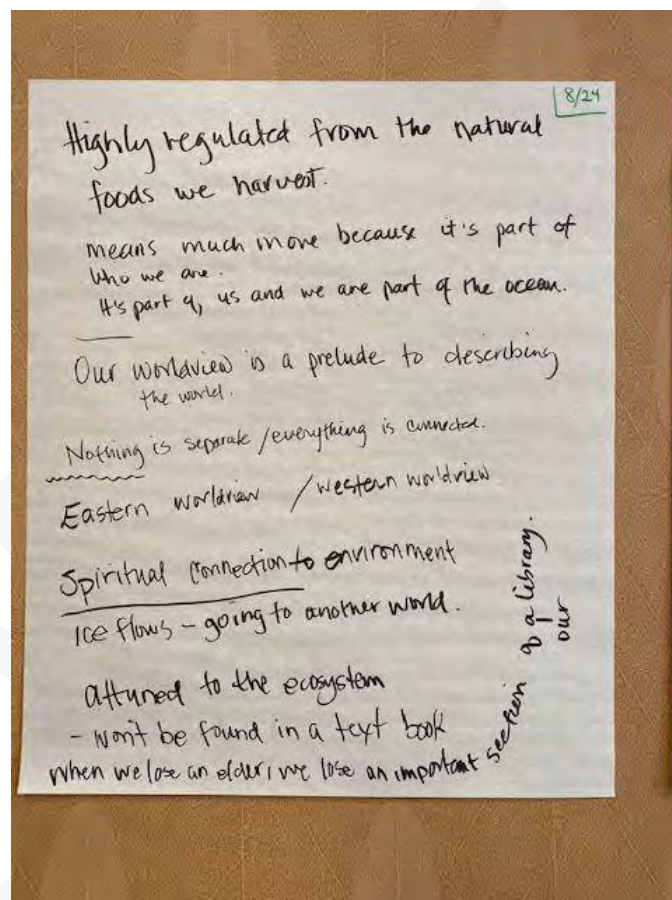 8/24
Highly regulated from the natural
foods we harvest.
means much more because it's part of
who we are.
It's part of us and we are part of the ocean.
Our worldview is a prelude to describing
the world.
Nothing is separate / everything is connected.
Eastern worldview / western worldview
Spiritual connection to environment
Ice flows - going to another world.
attuned to the ecosystem
- won't be found in a text book
When we lose an elder, we lose an important section of a library.
our